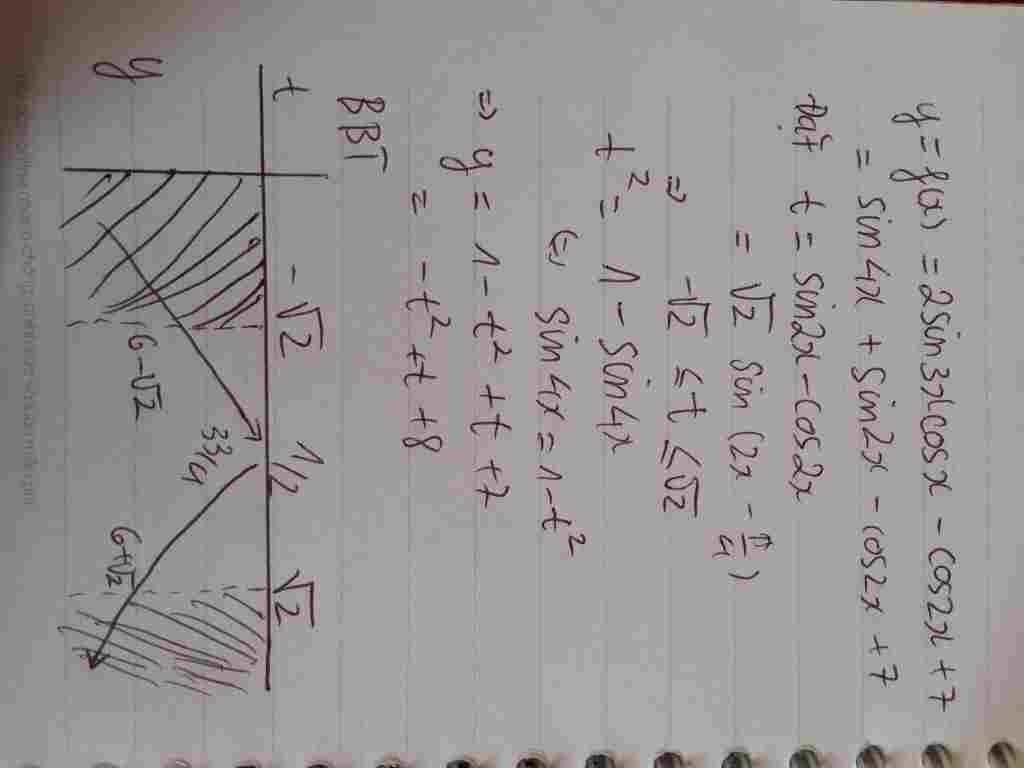 y = f(x) = 2sin3xcosx - cos2x + 7
= sin4x + sin2x - cos2x + 7
Đặt t = sin2x - cos2x
= √2 sin (2x - π/4)
⇒ -√2 ≤ t ≤ √2
t² = 1 - sin4x
(=) sin4x = 1 - t²
=) y = 1 - t² + t + 7
= -t² + t + 8
BBT
t -√2 1/2 √2
y 6-√2 33/4 6+√2